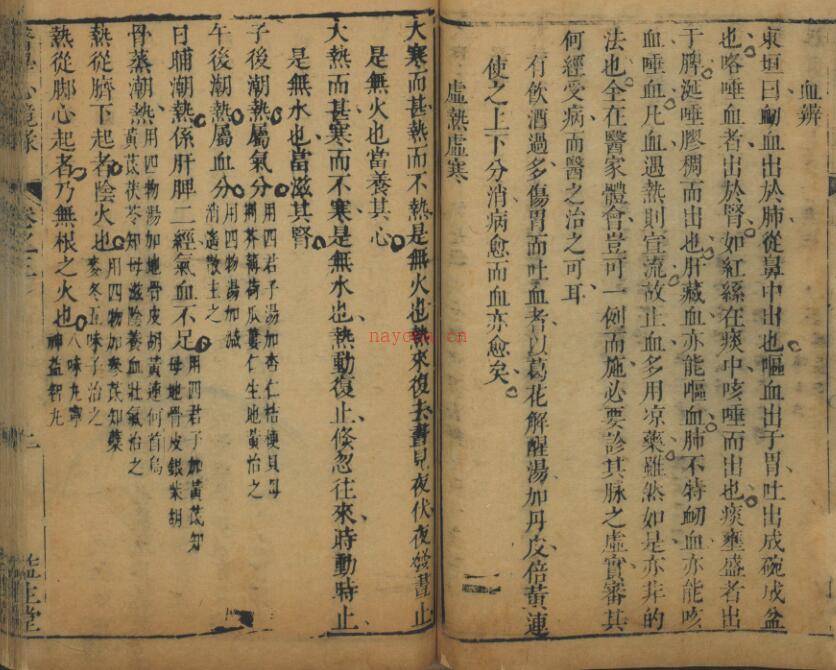 血辨
東垣曰衂血出於肺從鼻中出也嘔血出于胃吐出成碗成盆
也咯唾血者出於腎如紅絲在痰中咳唾而出也痰壅盛者出
于脾涎唾膠稠而出也肝藏血亦能嘔血肺不特衂血亦能咳
血唾血凡血遇熱則宣流故止血多用凉藥雖然如是亦非的
法也全在醫家體會豈可一例而施必要診其脉之虛實審其
何經受病而醫之治之可耳
有飲酒過多傷胃而吐血者以葛花解醒湯加丹皮倍黃連
使之上下分消病愈而血亦愈矣
虛熱虛寒
二
大寒而甚熱而不熱是無火也熱來復去晝見夜伏夜發晝止
是無火也當養其心
大熱而甚寒而不寒是無水也熱動復止倐忽往來時動時止
是無水也當滋其腎
子後潮熱屬氣分用四君子湯加杏仁桔梗貝母
荆芥薄荷瓜蔞仁生地黃治之
午後潮熱屬血分用四物湯加减
消遙散主之
日晡潮熱係肝脾二經氣血不足用四君子加黃芪知
母地骨皮銀柴胡
骨蒸潮熱用四物湯加地骨皮胡黃連何首烏
黃芪茯苓知母滋陰養血壯氣治之
熱從臍下起者陰火也用四物加參芪知蘗
麥冬五味子治之
熱從脚心起者乃無根之火也八味丸寧
神益智丸
卷之三
二
nayona.cn